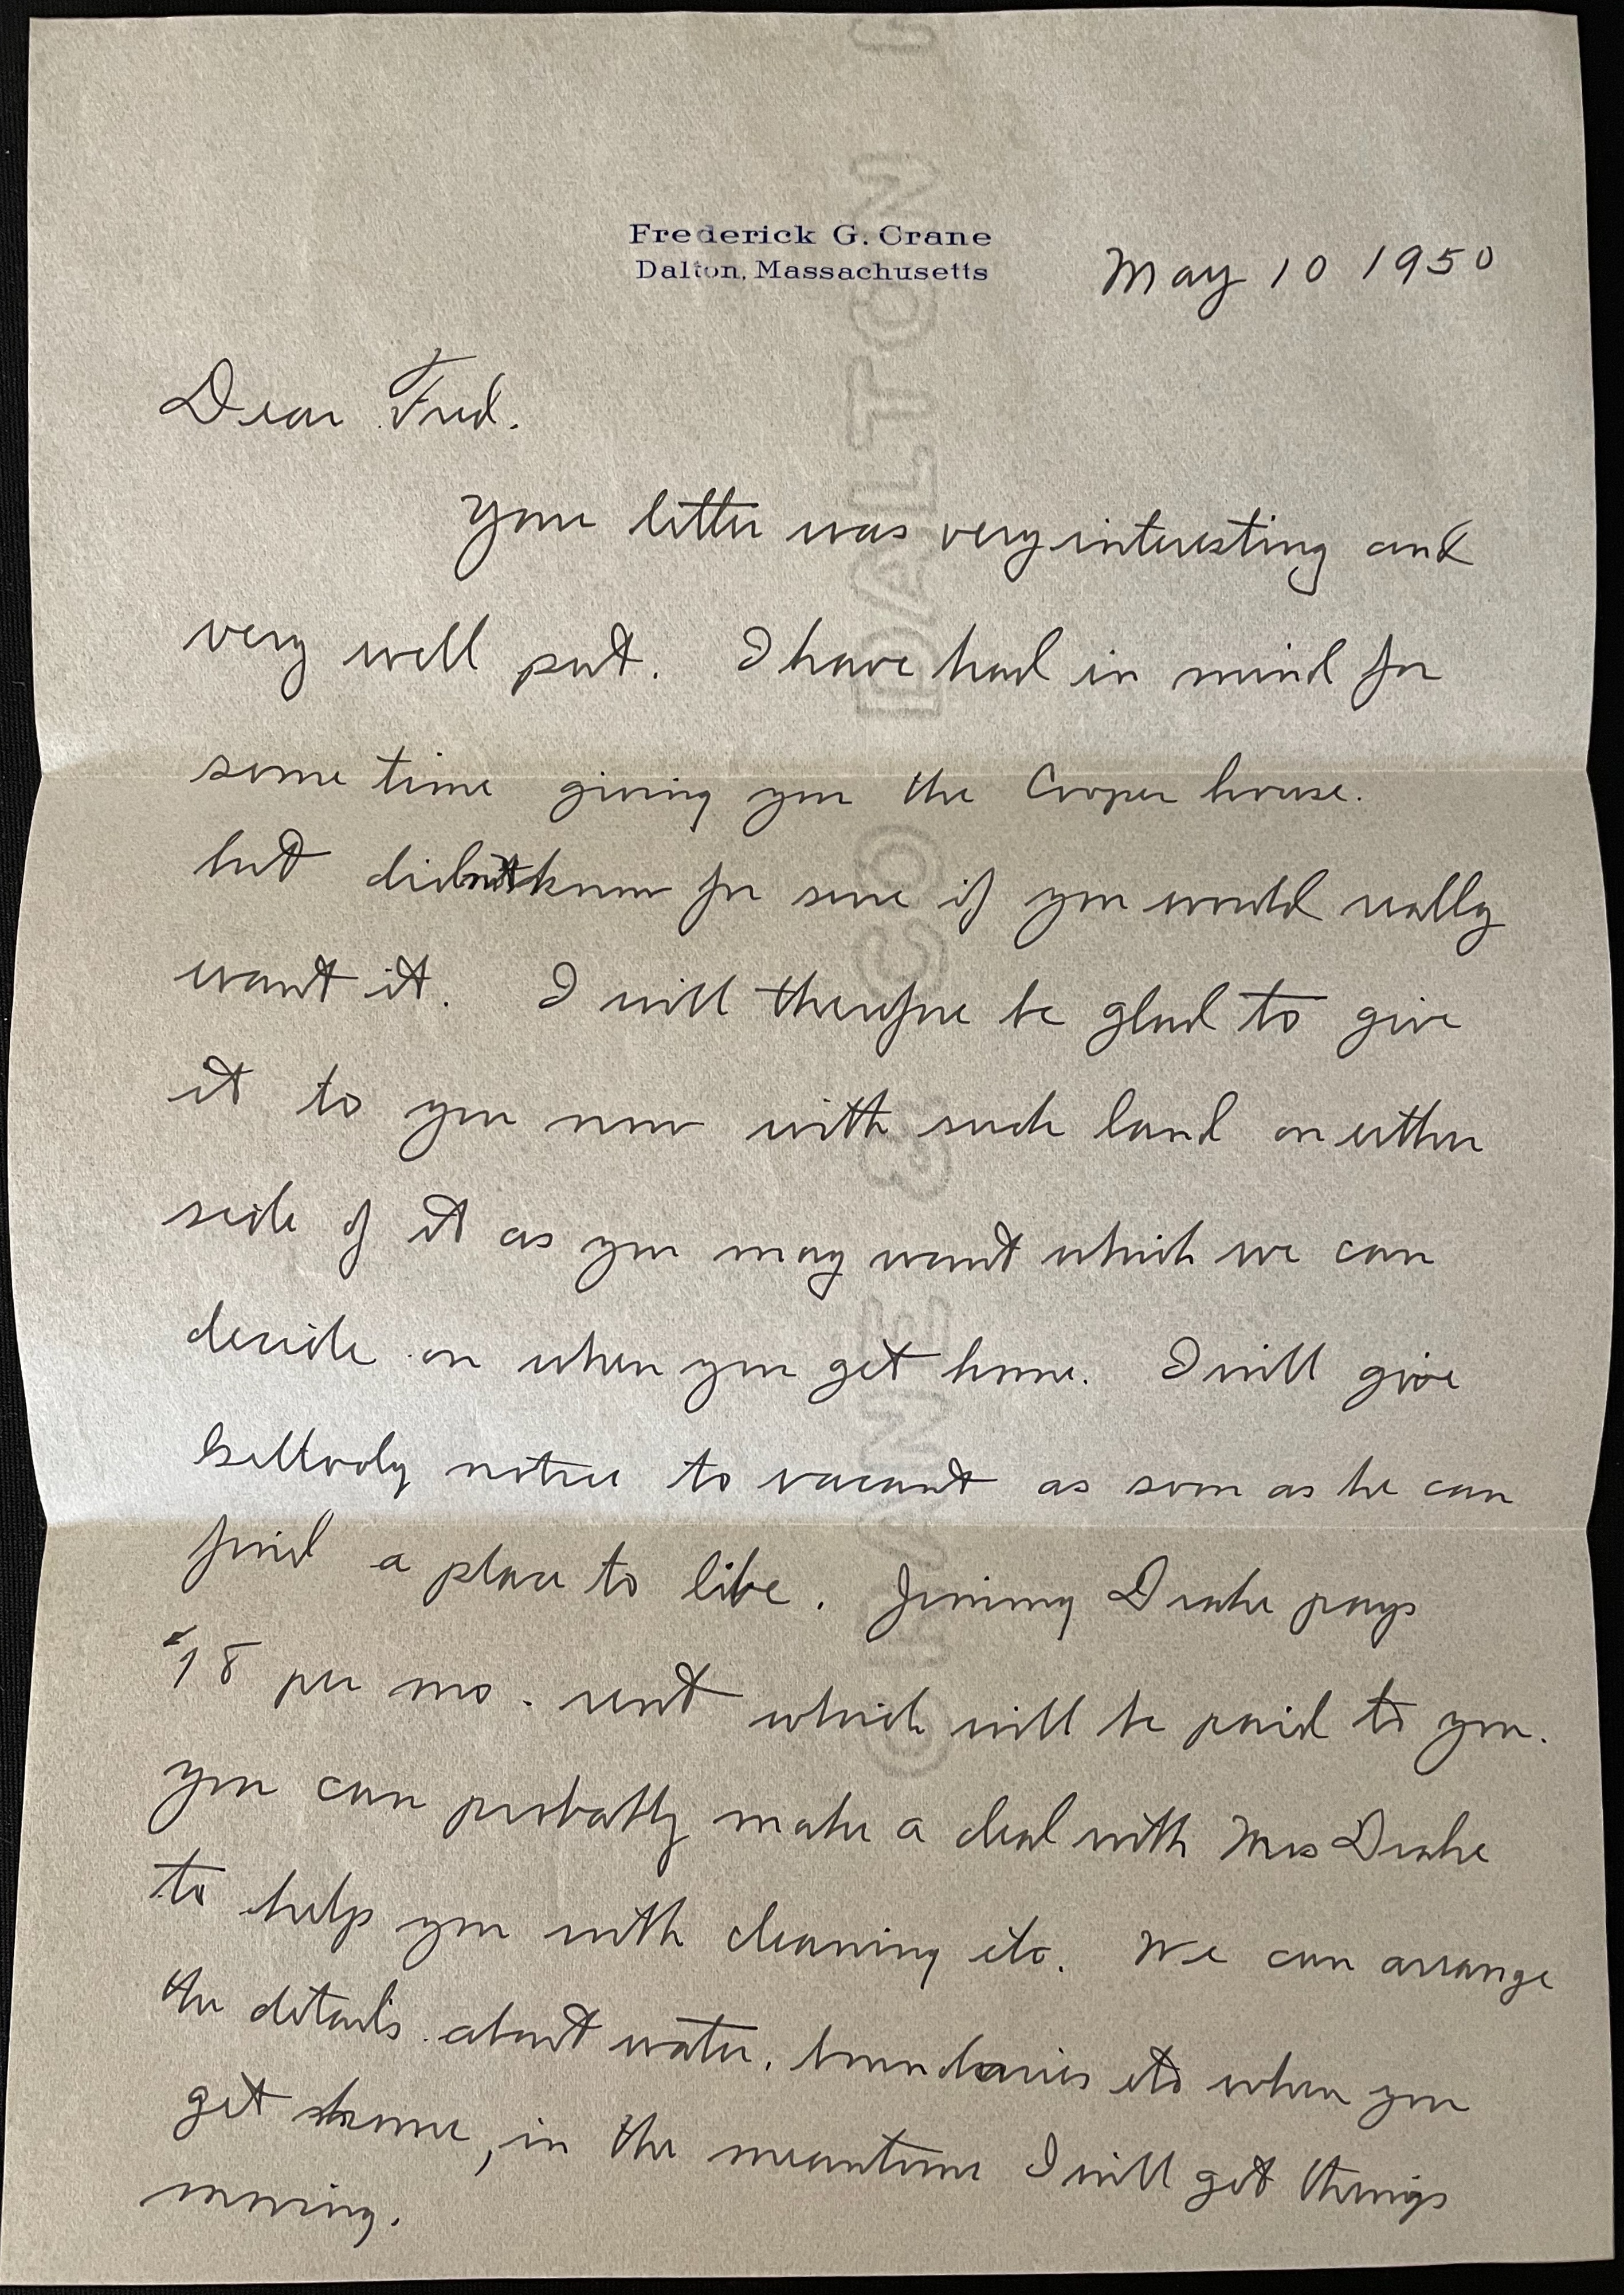 Frederick G. Crane
Dalton, Massachusetts
May 10 1950
Dear Fred.
Your letter was very interesting and
very well put. I have had in mind for
some time giving you the Cooper house.
but didn't know for sure if you would really
want it. I will therefore be glad to give
it to you now with such land on either
side of it as you may want which we can
decide on when you get home. I will give
notice to vacant as soon as he can
find a place to live. Jimmy Drake pays
$18 per mo. rent which will be paid to you.
You can probably make a deal with Mrs Drake
to help you with cleaning etc. We can arrange
the details about water, boundaries etc when you
get home, in the meantime I will get things
moving.
CRANE & CO DALTON